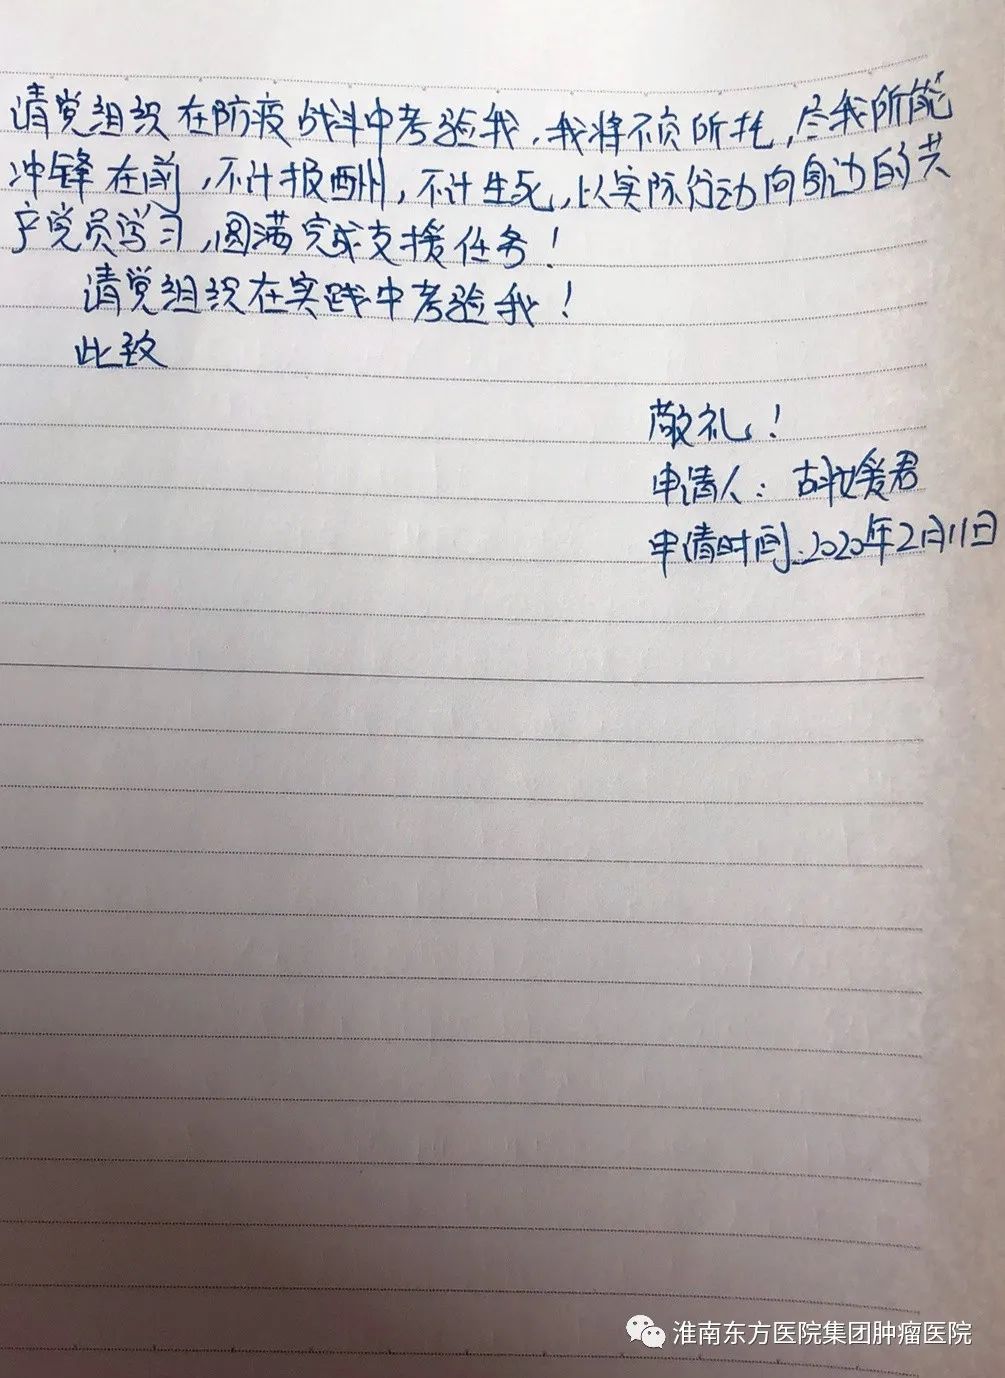 请党组织在防疫战斗中考验我，我将不负所托，尽我所能
冲锋在前，不计报酬，不计生死，以实际行动向身边的共
产党员学习，圆满完成支援任务！
请党组织在实践中考验我！
此致
敬礼！
申请人：胡媛君
申请时间：2020年2月11日
淮南东方医院集团肿瘤医院